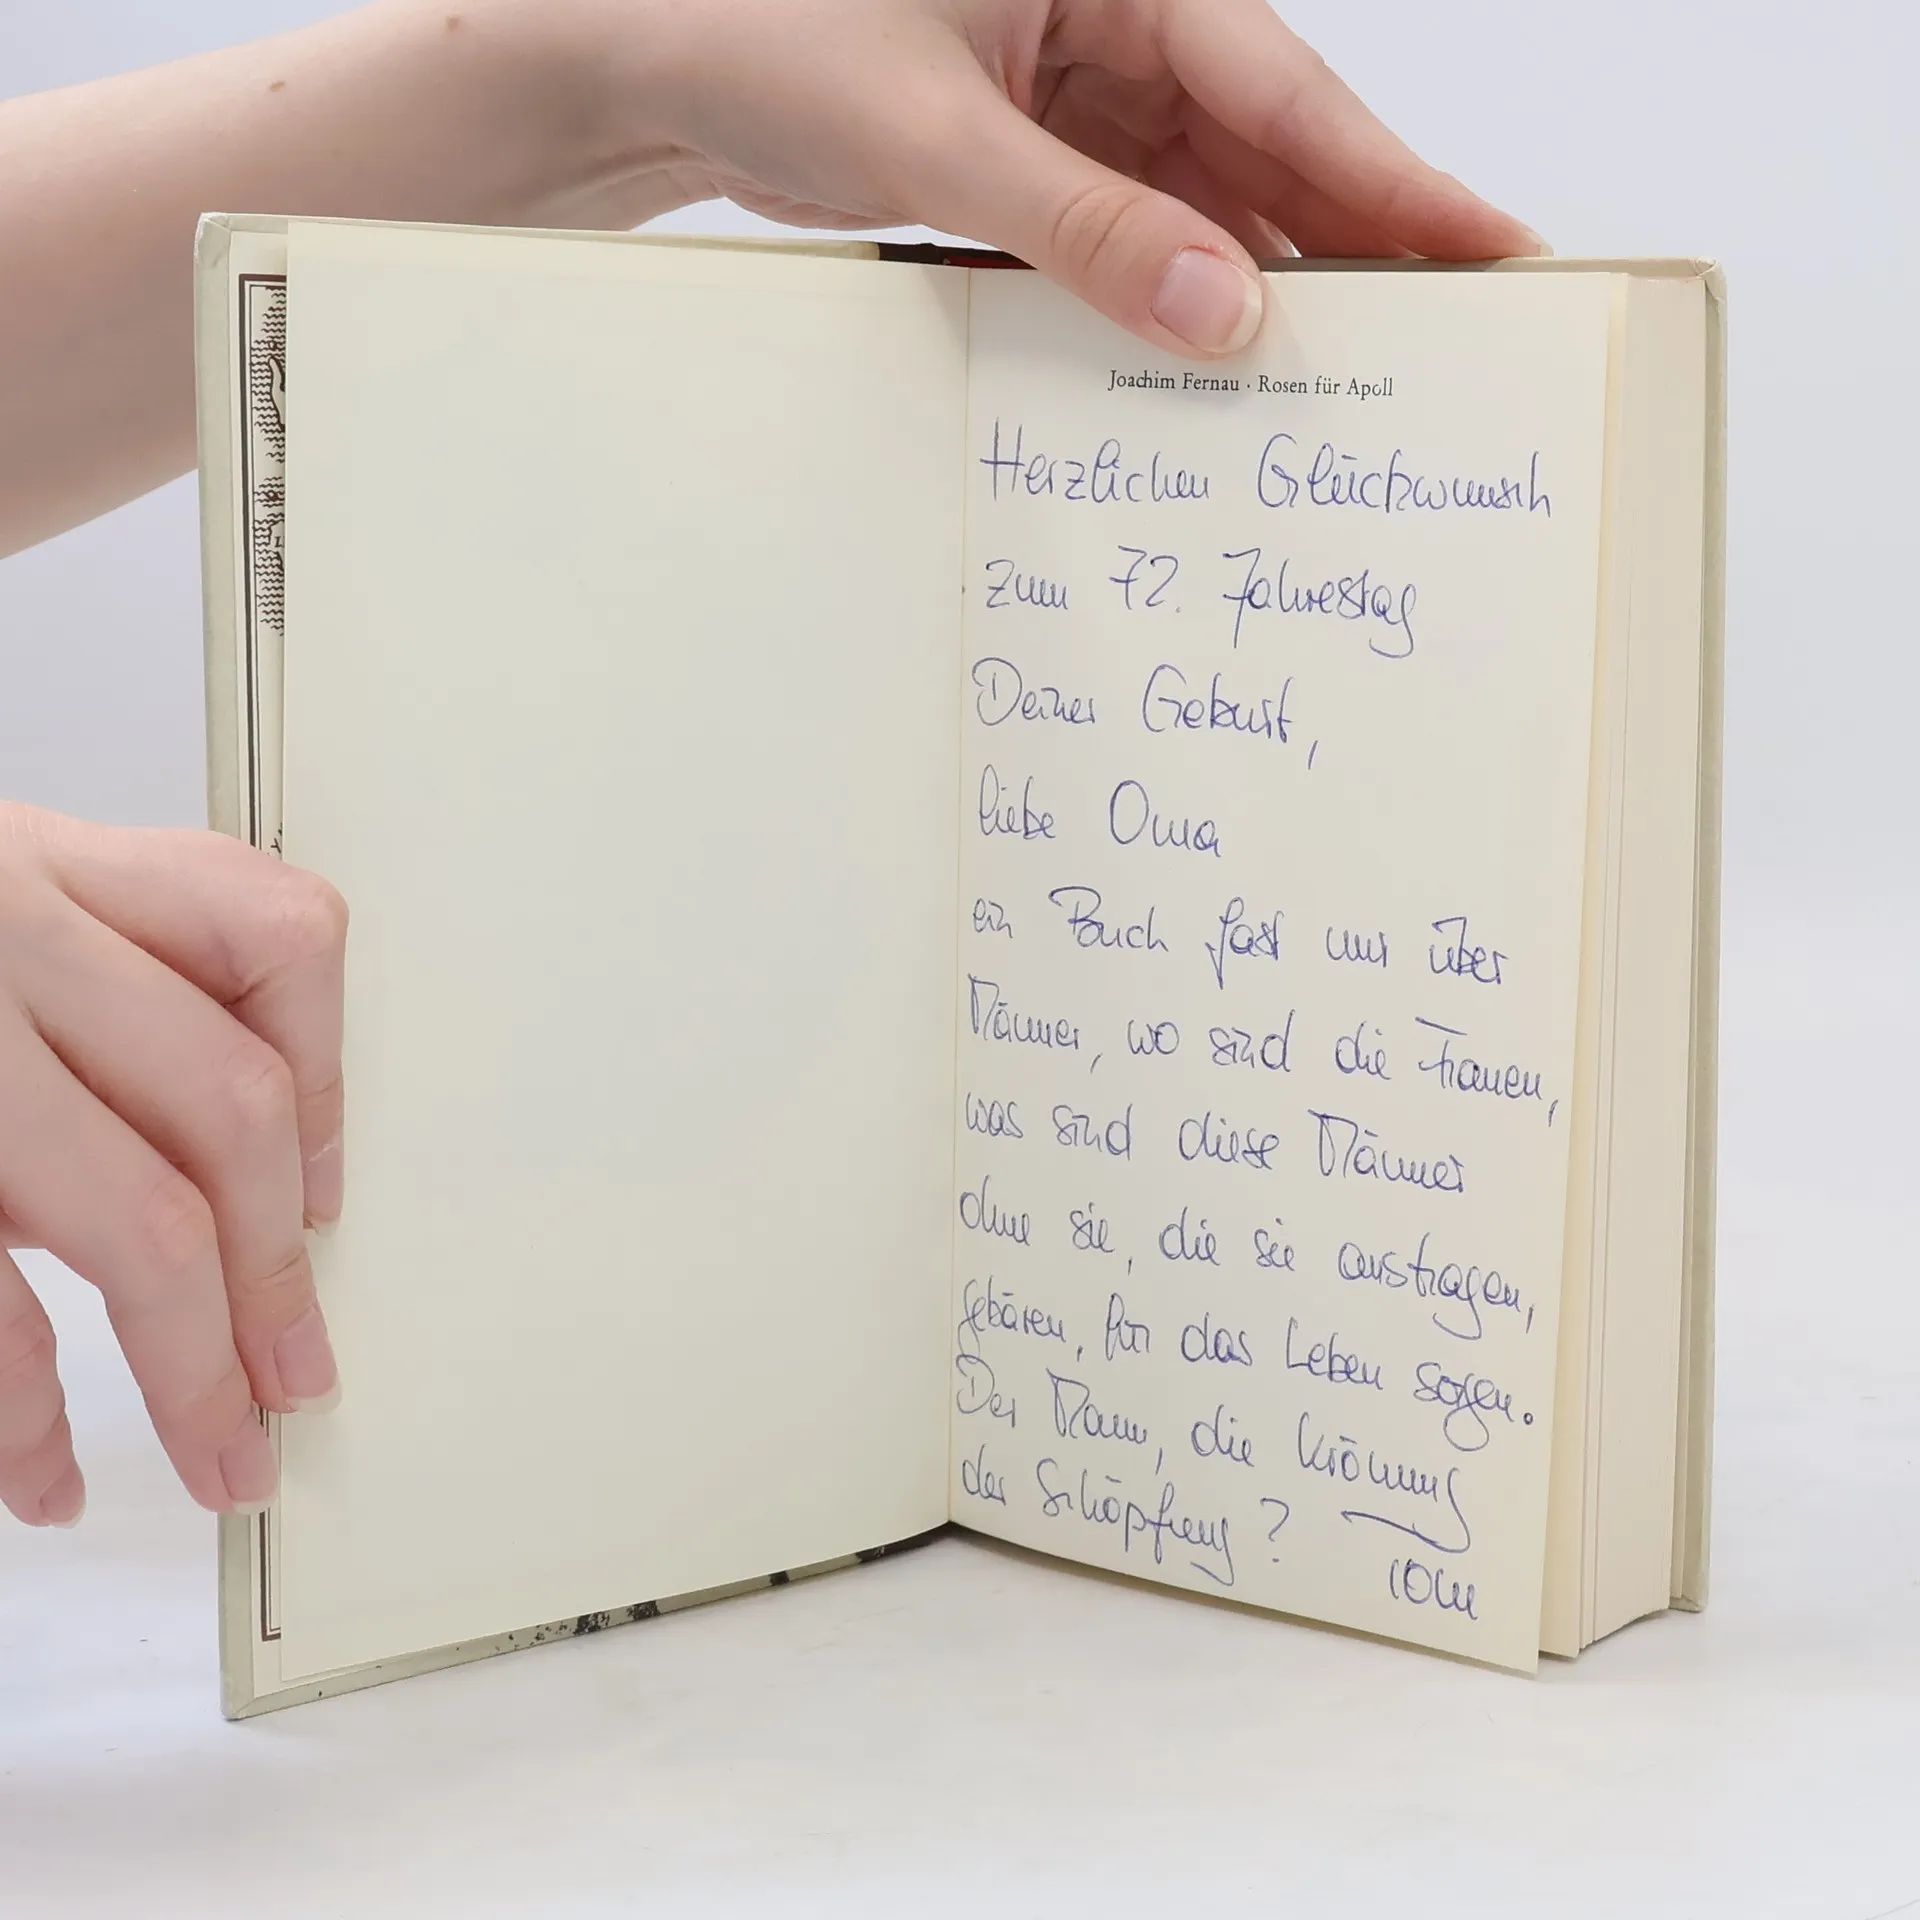 Joachim Fernau · Rosen für Apoll
Herzlichen Glückwunsch
zum 72. Jahrestag
Deiner Geburt,
liebe Oma
ein Buch fast nur über
Männer, wo sind die Frauen,
was sind diese Männer
ohne sie, die sie austragen,
gebären, für das Leben sorgen.
Der Mann, die Krönung
der Schöpfung?